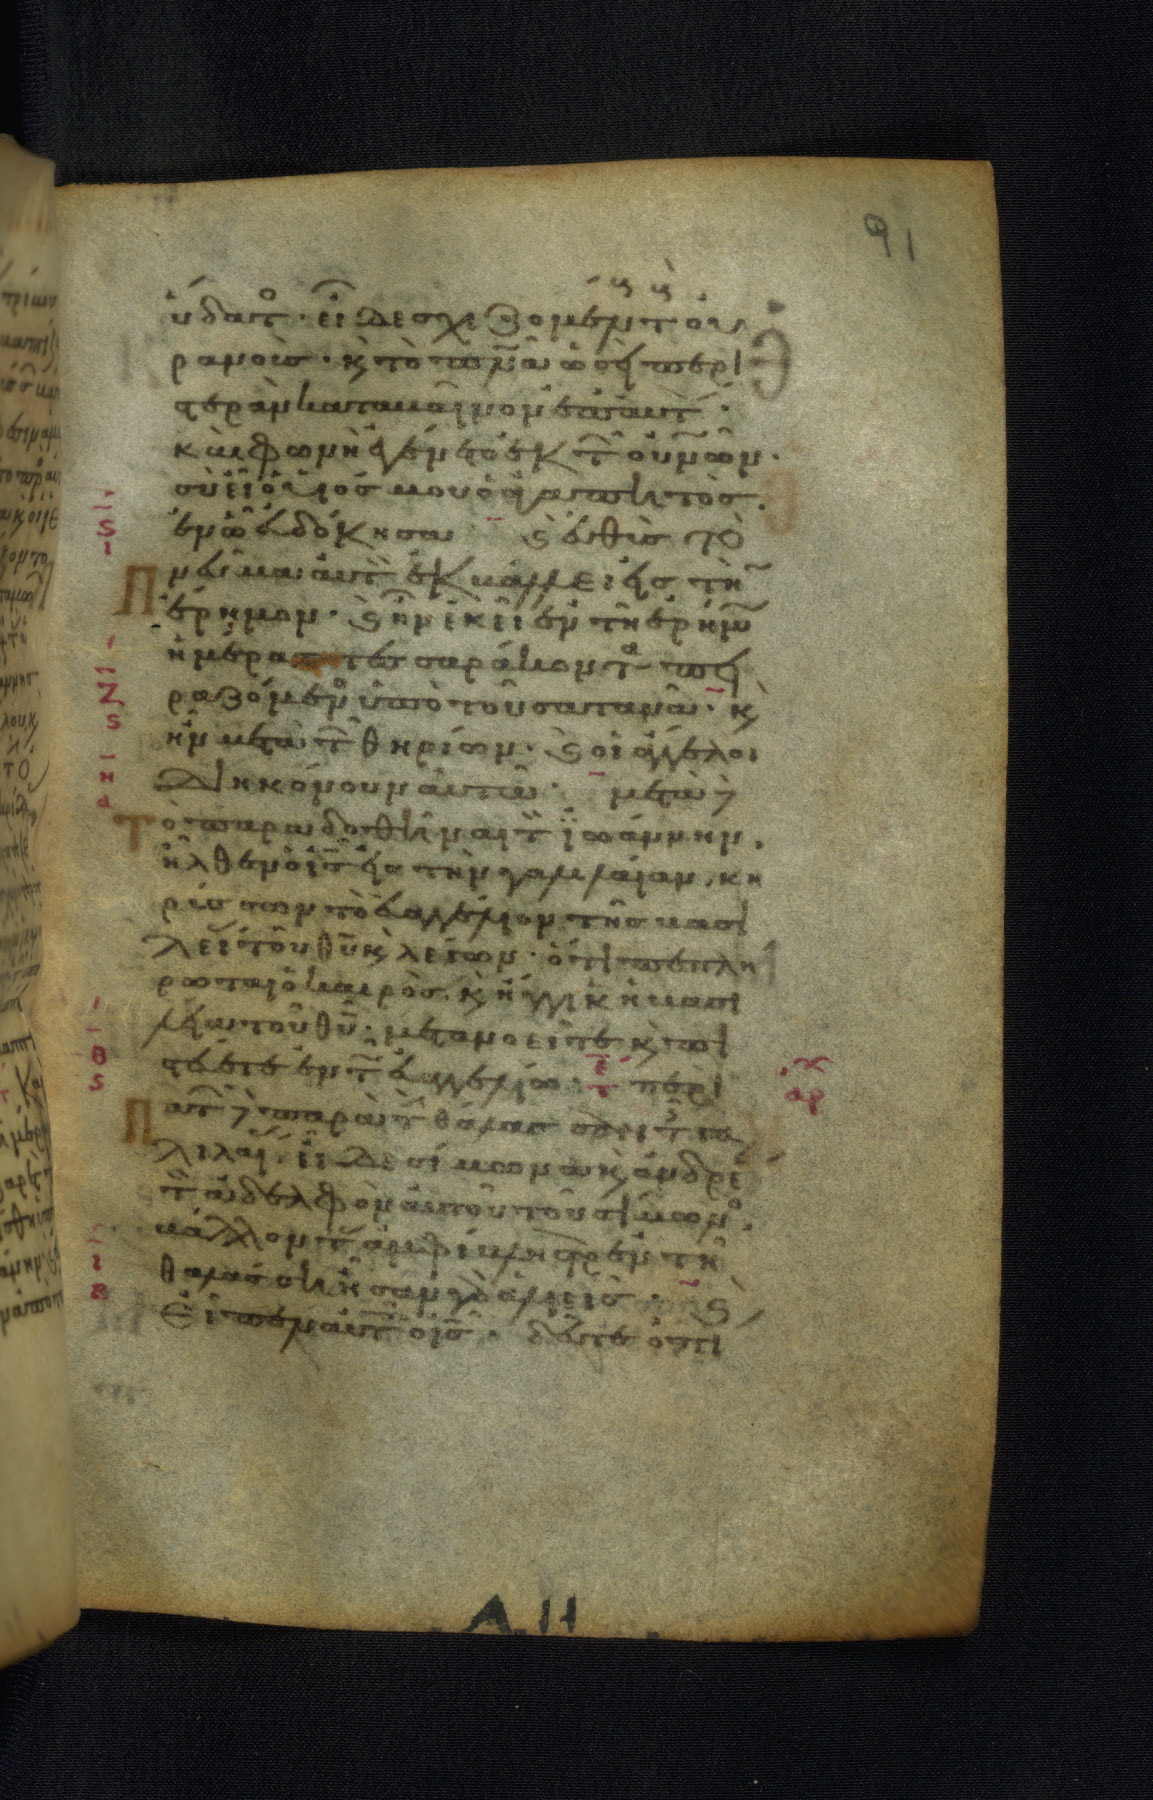 91
ὕδατ· εἶδε σχιζομένους τοὺς οὐ
ρανοὺς· κ̀ τὸ πνᾶ ὡσεὶ περι
στερὰν καταβαῖνον ἐπ' αὐτ·
καὶ φωνὴ ἐγένετο ἐκ τ οὐνῶν·
σὺ εἶ ὁ υἱός μου ὁ ἀγαπητὸς
ἐν ᾧ εὐδόκησα κ̀ εὐθὺς τὸ
πνεῦμα αὐτὸ ἐκβάλλει εἰς τὴν
ἔρημον· κ̀ ἦν ἐκεῖ ἐν τῆ ἐρήμω
ἡμέρας τεσσαράκοντα πει
ραζόμενος ὑπὸ τοῦ σατανᾶ· κ̀
ἦν μετὰ τῶν θηρίων· κ̀ οἱ ἄγγελοι
διηκόνουν αὐτῶ· μετὰ δὲ
τὸ παραδοθῆναι τ ἰωάννην,
ἦλθεν ὁ ις εἰς τὴν γαλιλαίαν, κη
ρύσσων τὸ εὐαγγέλιον τῆς βασι
λείας τοῦ θυ κ̀ λέγων· ὅτι πεπλή
ρωται ὁ καιρὸς, κ̀ ἤγγικεν ἡ βασι
λεία τοῦ θυ· μετανοεῖτε κ̀ πι
στεύετε ἐν τ εὐαγγελίω· περι
πατῶν δὲ παρὰ τ θάλασσαν τ γα
λιλαίας εἶδε σίμωνα κ̀ ἀνδρέαν
τ ἀδελφὸν αὐτοῦ τοῦ σίμωνος,
βάλλοντας ἀμφίβληστρον ἐν τῆ
θαλάσση ἦσαν γὰρ ἁλιεῖς· κ̀
εἶπεν αὐτοῖς ὁ ις· δεῦτε ὀπί
A.11